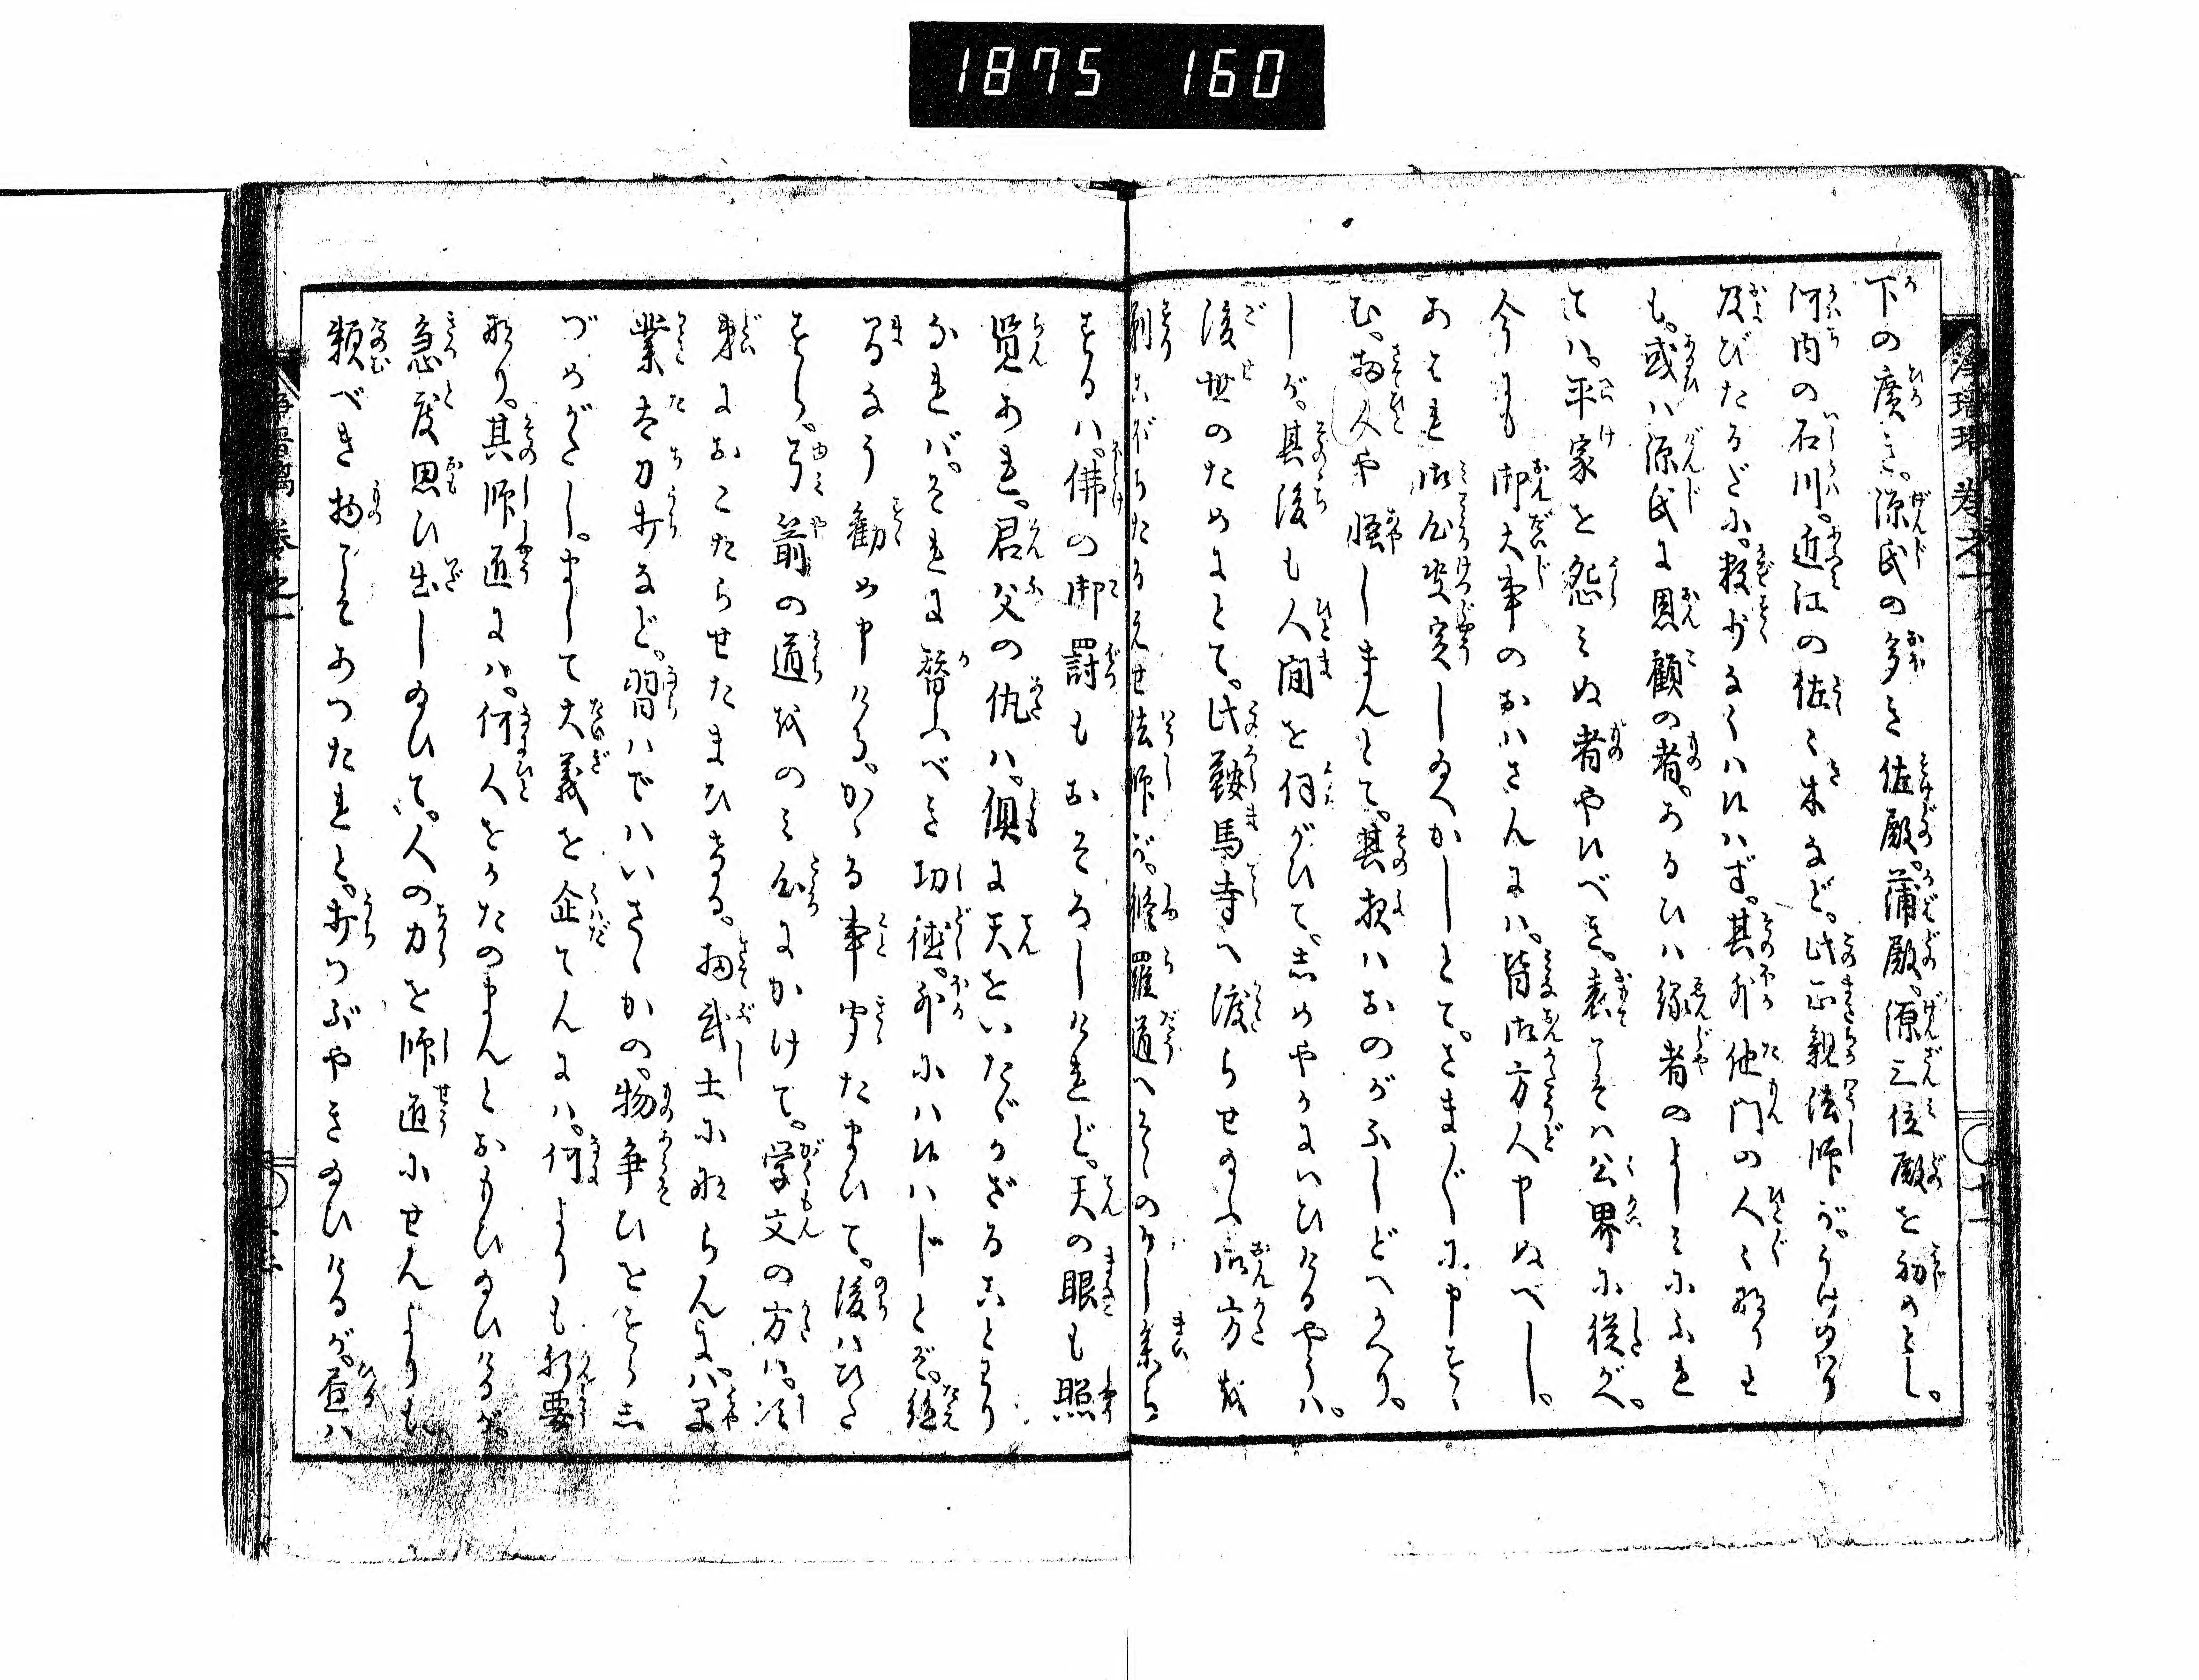 1875 160
浄瑠璃 巻之一
下の廣き。源氏の多き佐殿。蒲殿。源三位殿を初めとし。
河内の石川。近江の佐々木など。此正親法師が。うけ給り
及びたるだに。数少なくハ候ハず。其外他門の人々なりとも
も。或ハ源氏に恩顧の者。あるひハ縁者のよしみにふれ
てハ。平家を怨みぬ者や候べき。表こそハ公界に従がへ。
今にも御大事のおハさんにハ。皆御方人や申ぬべし。
あはれ御心决定し給へかしとて。さまざまに申すゝ
む。物人や怪しまんとて。其夜ハおのがふしどへかへり。
しが。其後も人間を伺がひて。志めやかにいひけるやうハ。
後世のためにとて。此鞍馬寺へ渡らせ給ふ御方を
剃こぼちたるえせ法師が。修羅道へそゝのかし参ら
するハ。佛の御罸もおそろしけれど。天の眼も照
覧あれ。君父の仇ハ。倶に天をいたゞかざることわり
なれバ。それに替ふべき功徳。外にハ候ハじとぞ。絶
るまなう勧め申ける。かゝる事聞たまひて。後ハひた
すら。弓箭の道をのみ心にかけて。学文の方ハ。次
第におこたらせたまひける。扨武士にならんにハ。早
業太刀打など。習ハでハいさゝかの。物争ひをすらし
づめがたし。まして大義を企てんにハ。何よりも肝要
なり。其師道にハ。何人をかたのまんとおもひ給ひけるが。
急度思ひ出し給ひて。人の力を師道にせんよりも
頼べき物こそあつたれと。打つぶやき給ひけるが。昼ハ
浄瑠璃 巻之一